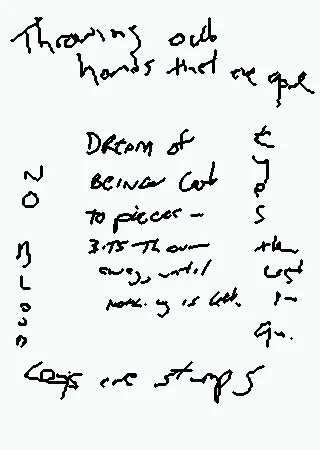 Throwing out
hands that are
DREAM OF
BEING Cut
TO pieces -
BITS Thrown
away, until
nothing is left.
NO BLOOD
eyes
the last
to
go.
Legs are stumps